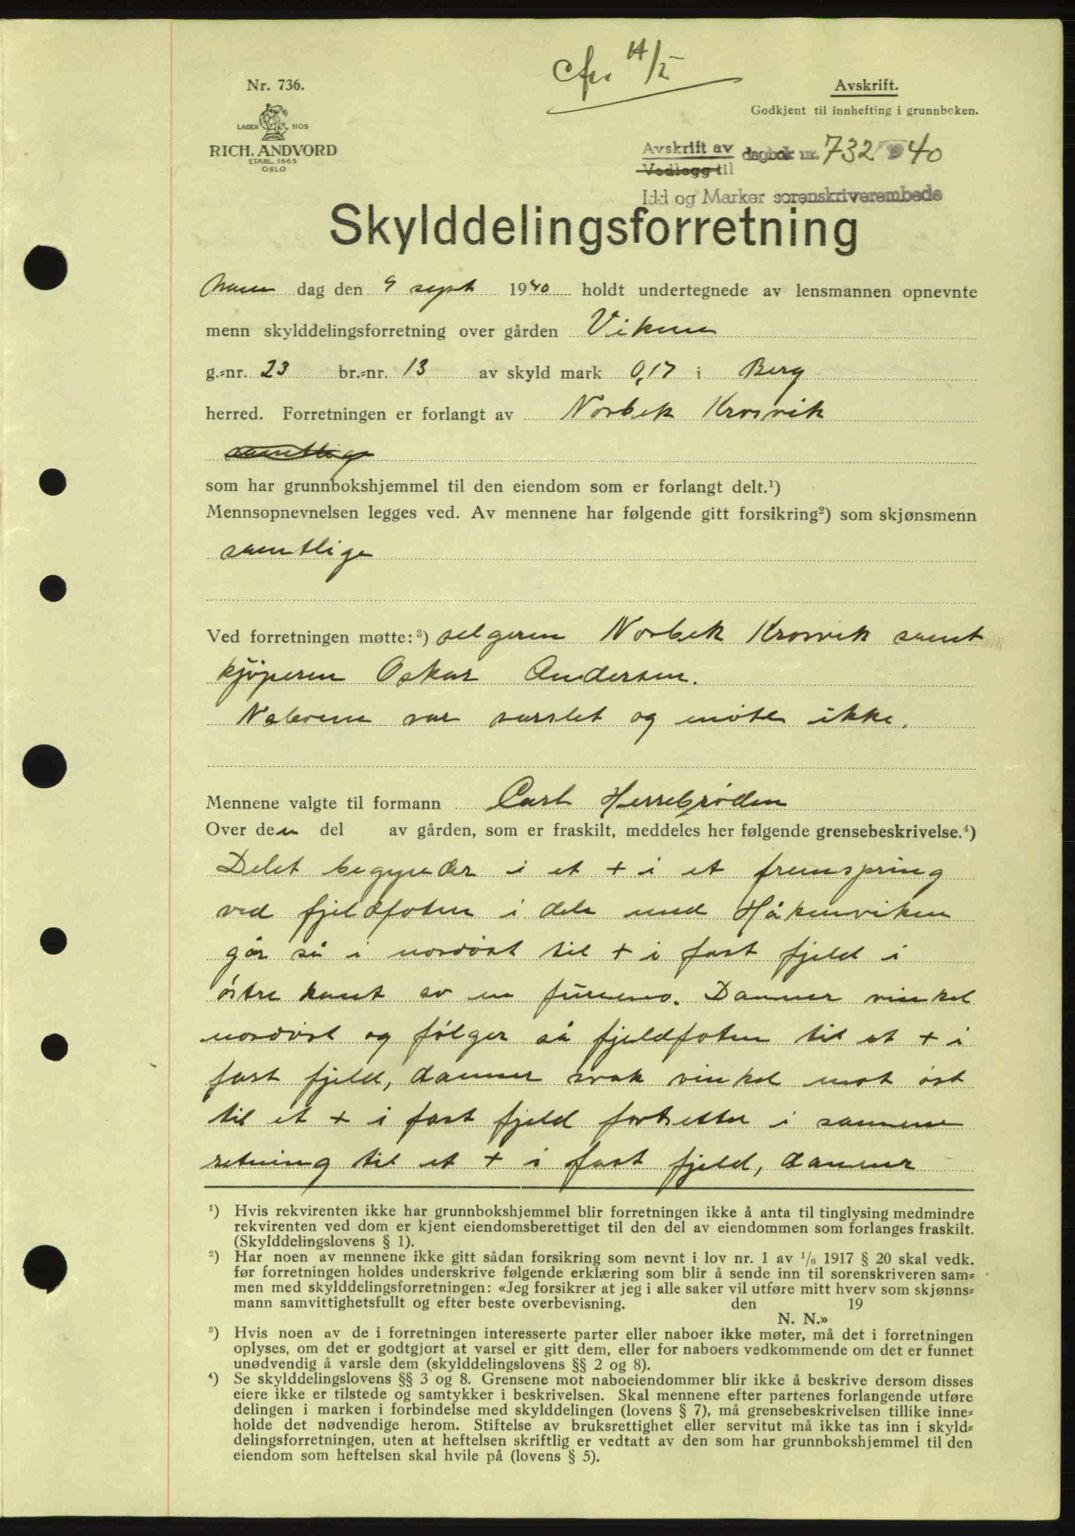 Nr. 736.
LAGER HOS
RICH. ANDVORD
ETABL. 1865
OSLO
cfr. 14/5
Avskrift.
Godkjent til innhefting i grunnboken.
Avskrift av dagbok nr. 732 1940
Vedlegg til
Idd og Marker sorenskriverembede
Skylddelingsforretning
Man dag den 9 sept 1940 holdt undertegnede av lensmannen opnevnte
menn skylddelingsforretning over gården Viken
g.-nr. 23 br.-nr. 13 av skyld mark 0,17 i Berg
herred. Forretningen er forlangt av Norbek Krosvik
samtlige
som har grunnbokshjemmel til den eiendom som er forlangt delt.¹)
Mennsopnevnelsen legges ved. Av mennene har følgende gitt forsikring²) som skjønsmenn
samtlige
Ved forretningen møtte:³) selgeren Norbek Krosvik samt
kjøperen Oskar Andersen.
Naboene var varslet og møte ikke.
Mennene valgte til formann Carl Herrebrøden
Over den del av gården, som er fraskilt, meddeles her følgende grensebeskrivelse.⁴)
Delet begynder i et + i et fremspring
ved fjeldfoten i dele med Håkenviken
går så i nordöst til + i fast fjeld i
östre kant av en fureno. Danner vinkel
nordöst og følger så fjeldfoten til et + i
fast fjeld, danner svak vinkel mot öst
til et + i fast fjeld fortsetter i samme
retning til et + i fast fjeld, danner
¹) Hvis rekvirenten ikke har grunnbokshjemmel blir forretningen ikke å anta til tinglysing medmindre
rekvirenten ved dom er kjent eiendomsberettiget til den del av eiendommen som forlanges fraskilt.
(Skylddelingslovens § 1).
²) Har noen av mennene ikke gitt sådan forsikring som nevnt i lov nr. 1 av ¹/₆ 1917 § 20 skal vedk.
før forretningen holdes underskrive følgende erklæring som blir å sende inn til sorenskriveren sam-
men med skylddelingsforretningen: «Jeg forsikrer at jeg i alle saker vil utføre mitt hverv som skjønns-
mann samvittighetsfullt og efter beste overbevisning. den 19
N. N.»
³) Hvis noen av de i forretningen interesserte parter eller naboer ikke møter, må det i forretningen
oplyses, om det er godtgjort at varsel er gitt dem, eller for naboers vedkommende om det er funnet
unødvendig å varsle dem (skylddelingslovens §§ 2 og 8).
⁴) Se skylddelingslovens §§ 3 og 8. Grensene mot naboeiendommer blir ikke å beskrive dersom disses
eiere ikke er tilstede og samtykker i beskrivelsen. Skal mennene efter partenes forlangende utføre
delingen i marken i forbindelse med skylddelingen (lovens § 7), må grensebeskrivelsen tillike inne-
holde det nødvendige herom. Stiftelse av bruksrettighet eller servitut må ikke tas inn i skyld-
delingsforretningen, uten at heftelsen skriftlig er vedtatt av den som har grunnbokshjemmel til den
eiendom som heftelsen skal hvile på (lovens § 5).